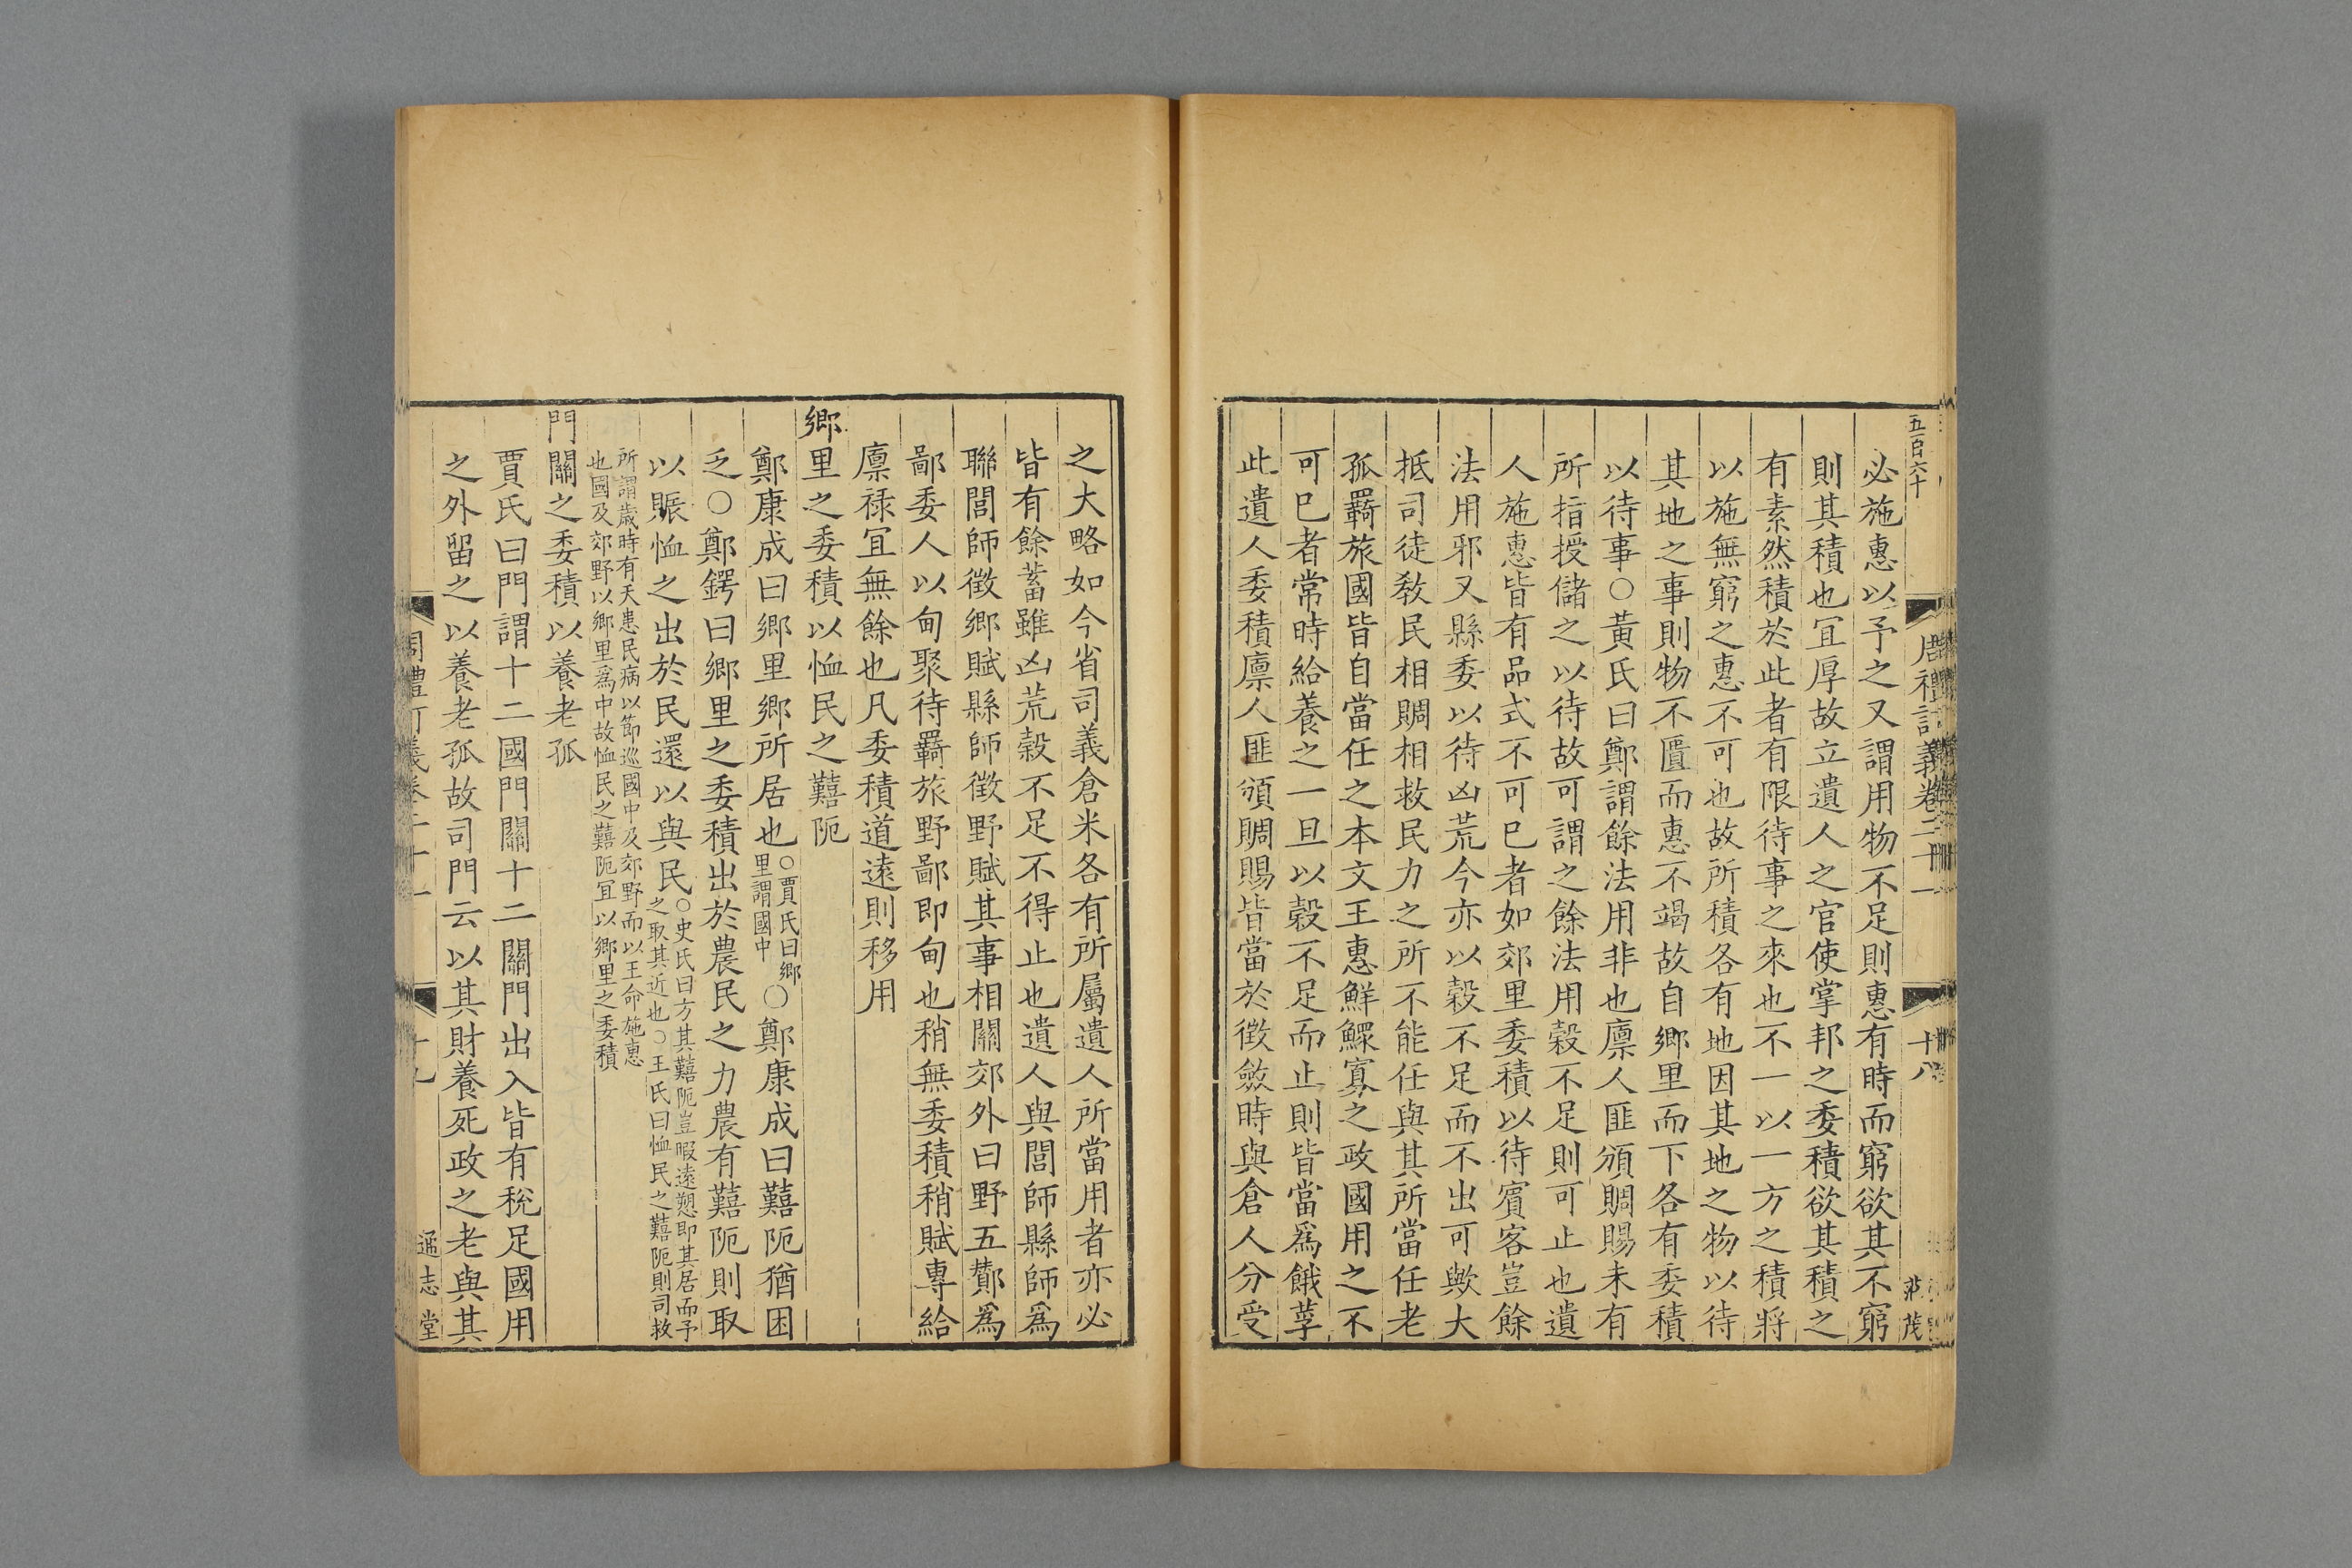 五百六十
周禮訂義卷二十一
十八
茂
必施惠以予之又謂用物不足則惠有時而窮欲其不窮
則其積也冝厚故立遺人之官使掌邦之委積欲其積之
有素然積於此者有限待事之來也不一以一方之積將
以施無窮之惠不可也故所積各有地因其地之物以待
其地之事則物不匱而惠不竭故自鄉里而下各有委積
以待事○黃氏曰鄭謂餘法用非也廩人匪頒賙賜未有
所指授儲之以待故可謂之餘法用糓不足則可止也遺
人施惠皆有品式不可已者如郊里委積以待賓客豈餘
法用邪又縣委以待凶荒今亦以糓不足而不出可歟大
抵司徒敎民相賙相救民力之所不能任與其所當任老
孤羇旅國皆自當任之本文王惠鮮鰥寡之政國用之不
可已者常時給養之一旦以糓不足而止則皆當爲餓莩
此遺人委積廩人匪頒賙賜皆當於徵斂時與倉人分受
之大略如今省司義倉米各有所屬遺人所當用者亦必
皆有餘蓄雖凶荒糓不足不得止也遺人與閭師縣師爲
聯閭師徵鄉賦縣師徵野賦其事相關郊外曰野五酇爲
鄙委人以甸聚待羇旅野鄙即甸也稍無委積稍賦專給
廩祿冝無餘也凡委積道遠則移用
鄉里之委積以恤民之囏阨
鄭康成曰鄉里鄉所居也○賈氏曰鄉里謂國中○鄭康成曰囏阨猶困
乏○鄭鍔曰鄉里之委積出於農民之力農有囏阨則取
以賑恤之出於民還以與民○史氏曰方其囏阨豈暇遠愬即其居而予之取其近也○王氏曰恤民之囏阨則司救
所謂歲時有天患民病以節巡國中及郊野而以王命施惠也國及郊野以鄉里爲中故恤民之囏阨冝以鄉里之委積
門關之委積以養老孤
賈氏曰門謂十二國門關十二關門出入皆有稅足國用
之外留之以養老孤故司門云以其財養死政之老與其
周禮訂義卷二十一
十九
通志堂